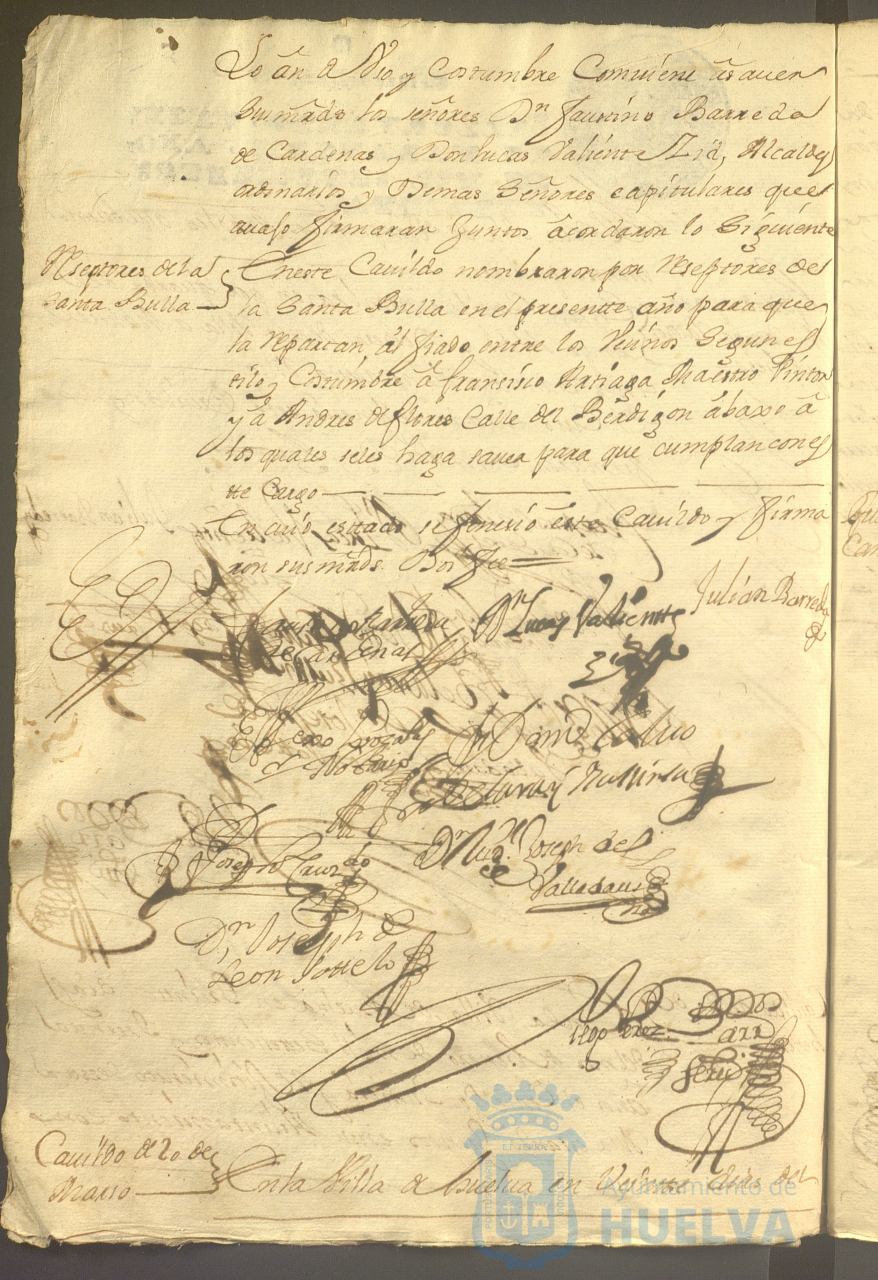 Lo an de Uso y Costumbre Conviene a saver
Sus mrds los señores Dn Faustino Barreda
de Cardenas y Don Lucas Valiente Alcaldes
ordinarios y Demas Señores capitulares que
avajo firmaran Juntos acordaron lo Siguiente
Reseptores de la
Santa Bulla
En este Cavildo nombraron por Reseptores de
la Santa Bulla en el presentte año para que
la Repartan, al fiado entre los Vecinos Segun es
tilo y Costumbre a Francisco Artiaga Maestro Pintor
y a Andres de flores Calle del Berdigon abaxo a
los quales seles haga saver para que cumplan con es
tte Cargo
En cuio esttado se fenesio este Cavildo y firma
ron sus mrds Doi fee
de Cardenas
Dn Lucas Valiente
Julian Barreda
Joseph
Dn Joseph de
Valladares
Dn Joseph de
Leon
Cavildo de 20 de
Marso
En la Villa de Huelva en Veintte dias del
Ayuntamiento de
HUELVA